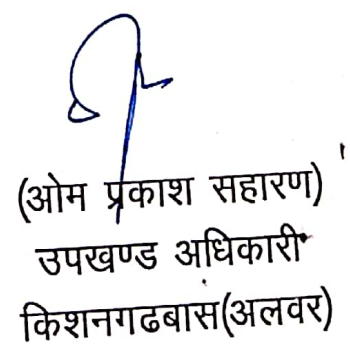 (ओम प्रकाश सहारण)
उपखण्ड अधिकारी
किशनगढबास(अलवर)